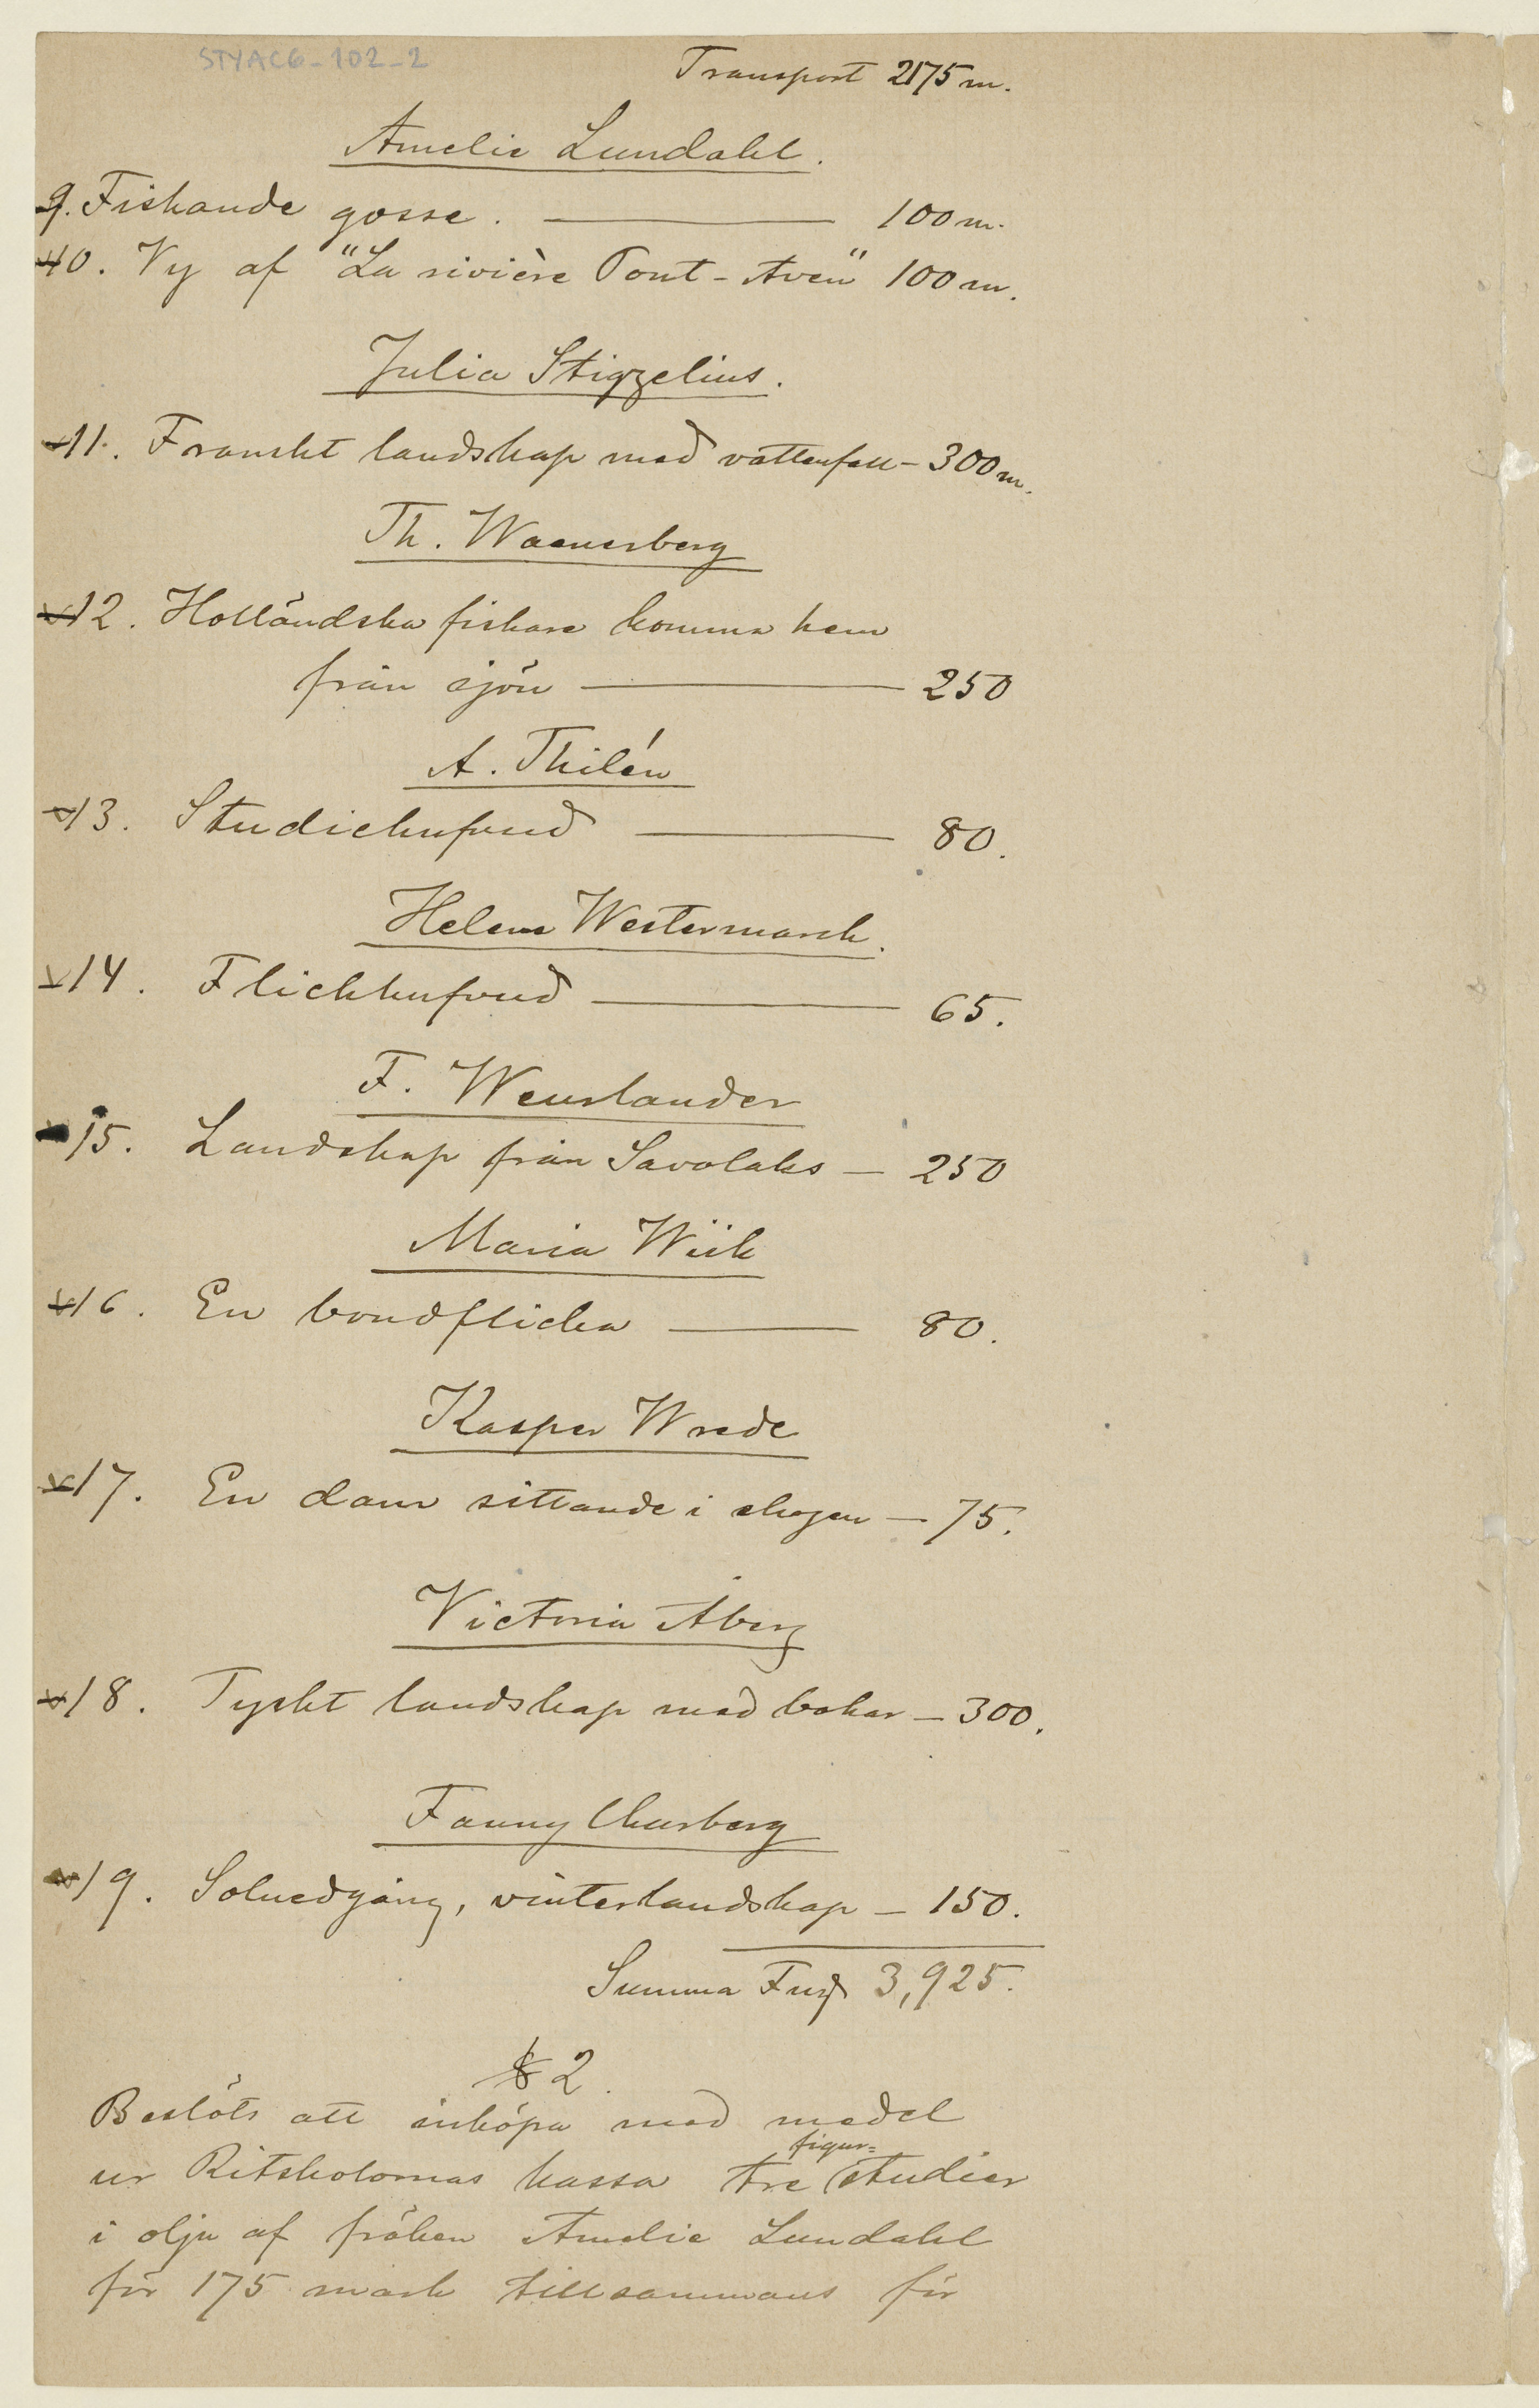 STYAC6-102-2
Transport 2175 m.
Amelie Lundahl.
9. Fiskande gosse. — 100 m.
10. Vy af "La rivière Pont-Aven" 100 m.
Julia Stigzelius.
11. Franskt landskap med vattenfall - 300 m.
Th. Waenerberg
12. Holländska fiskare komma hem
från sjön — 250
A. Thilén
13. Studiehufvud — 80.
Helena Westermarck.
14. Flickhufvud — 65.
F. Wenrlander
15. Landskap från Savolaks — 250
Maria Wiik
16. En bondflicka — 80.
Kasper Wrede
17. En dam sittande i skogen — 75.
Victoria Åberg
18. Tyskt landskap med bokar — 300.
Fanny Churberg
19. Solnedgång, vinterlandskap — 150.
Summa Fmk 3,925.
§ 2.
Beslöts att inköpa med medel
figur=
ur Ritskolornas kassa tre studier
i olja af fröken Amelie Lundahl
för 175 mark tillsammans för